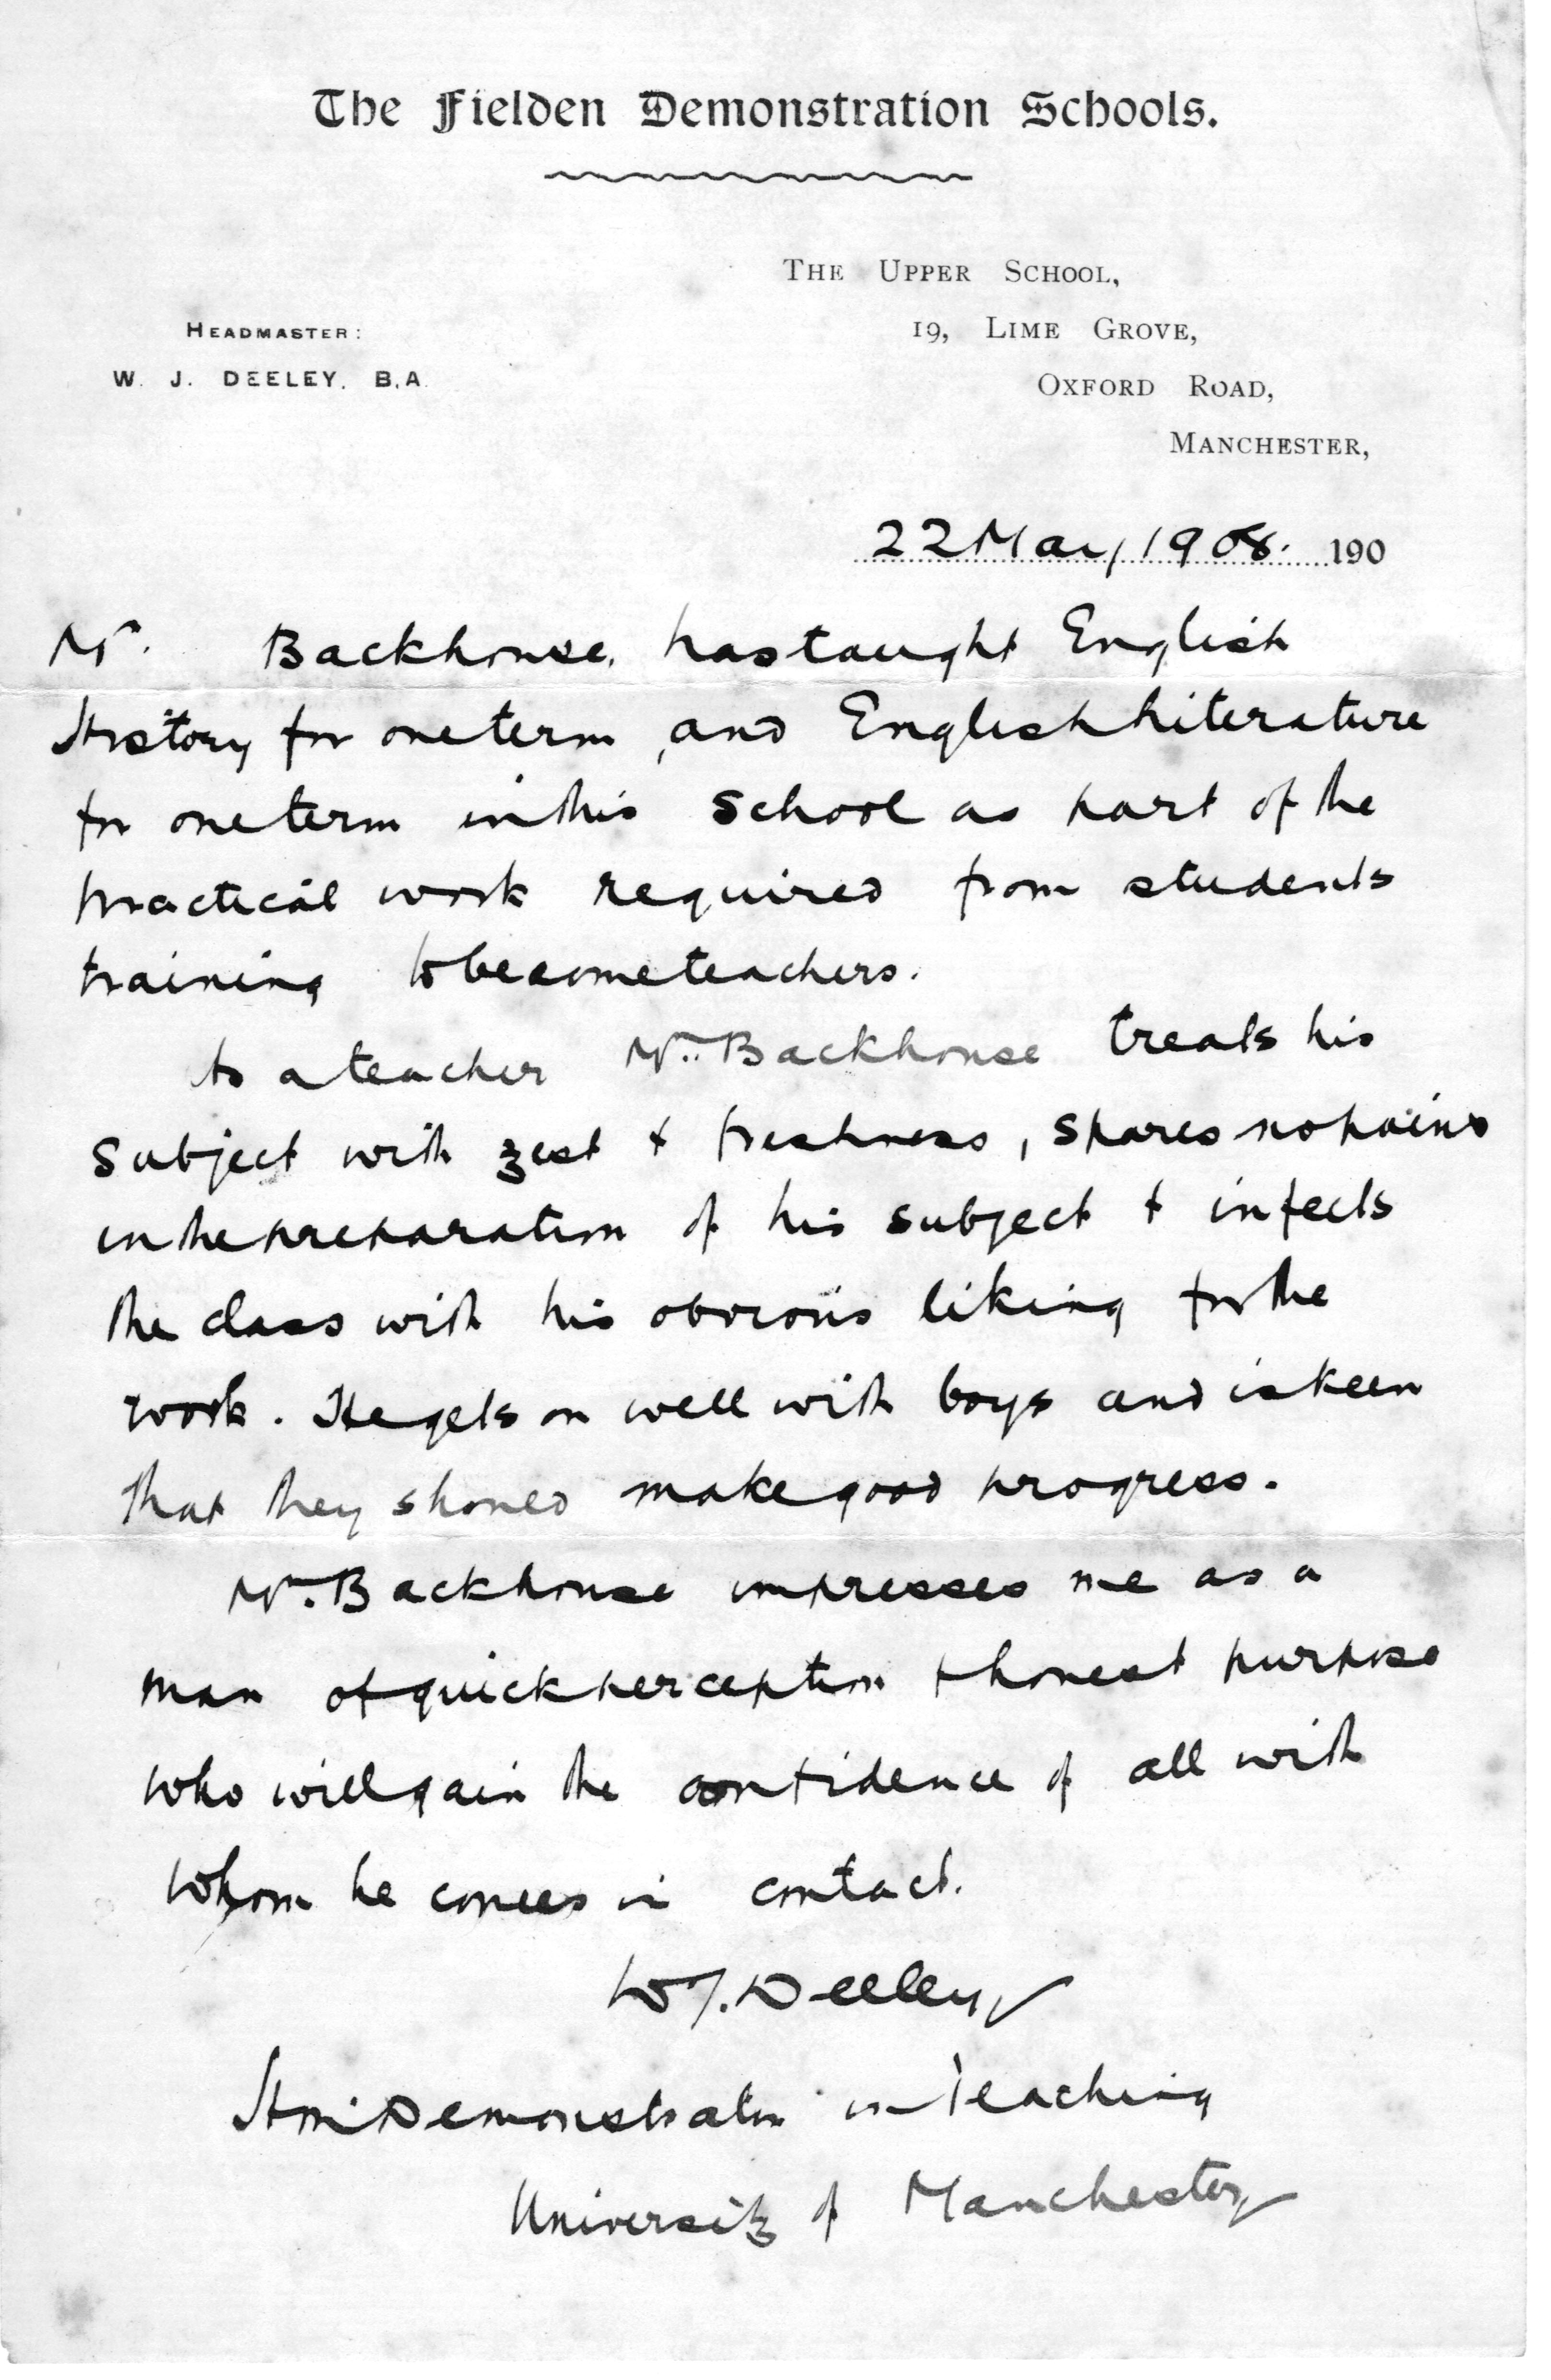 The Fielden Demonstration Schools.
THE UPPER SCHOOL,
19, LIME GROVE,
HEADMASTER:
W. J. DEELEY, B.A.
OXFORD ROAD,
MANCHESTER,
22 May 1908. 190
Mr. Backhouse, has taught English
History for one term, and English Literature
for one term in this School as part of the
practical work required from students
training to become teachers.
As a teacher Mr. Backhouse treats his
subject with zest & freshness, spares no pains
in the preparation of his subject & infects
the class with his obvious liking for the
work. He gets on well with boys and is keen
that they should make good progress.
Mr. Backhouse impresses me as a
man of quick perception & honest purpose
who will gain the confidence of all with
whom he comes in contact.
W J. Deeley
Hon. Demonstrator in Teaching
University of Manchester